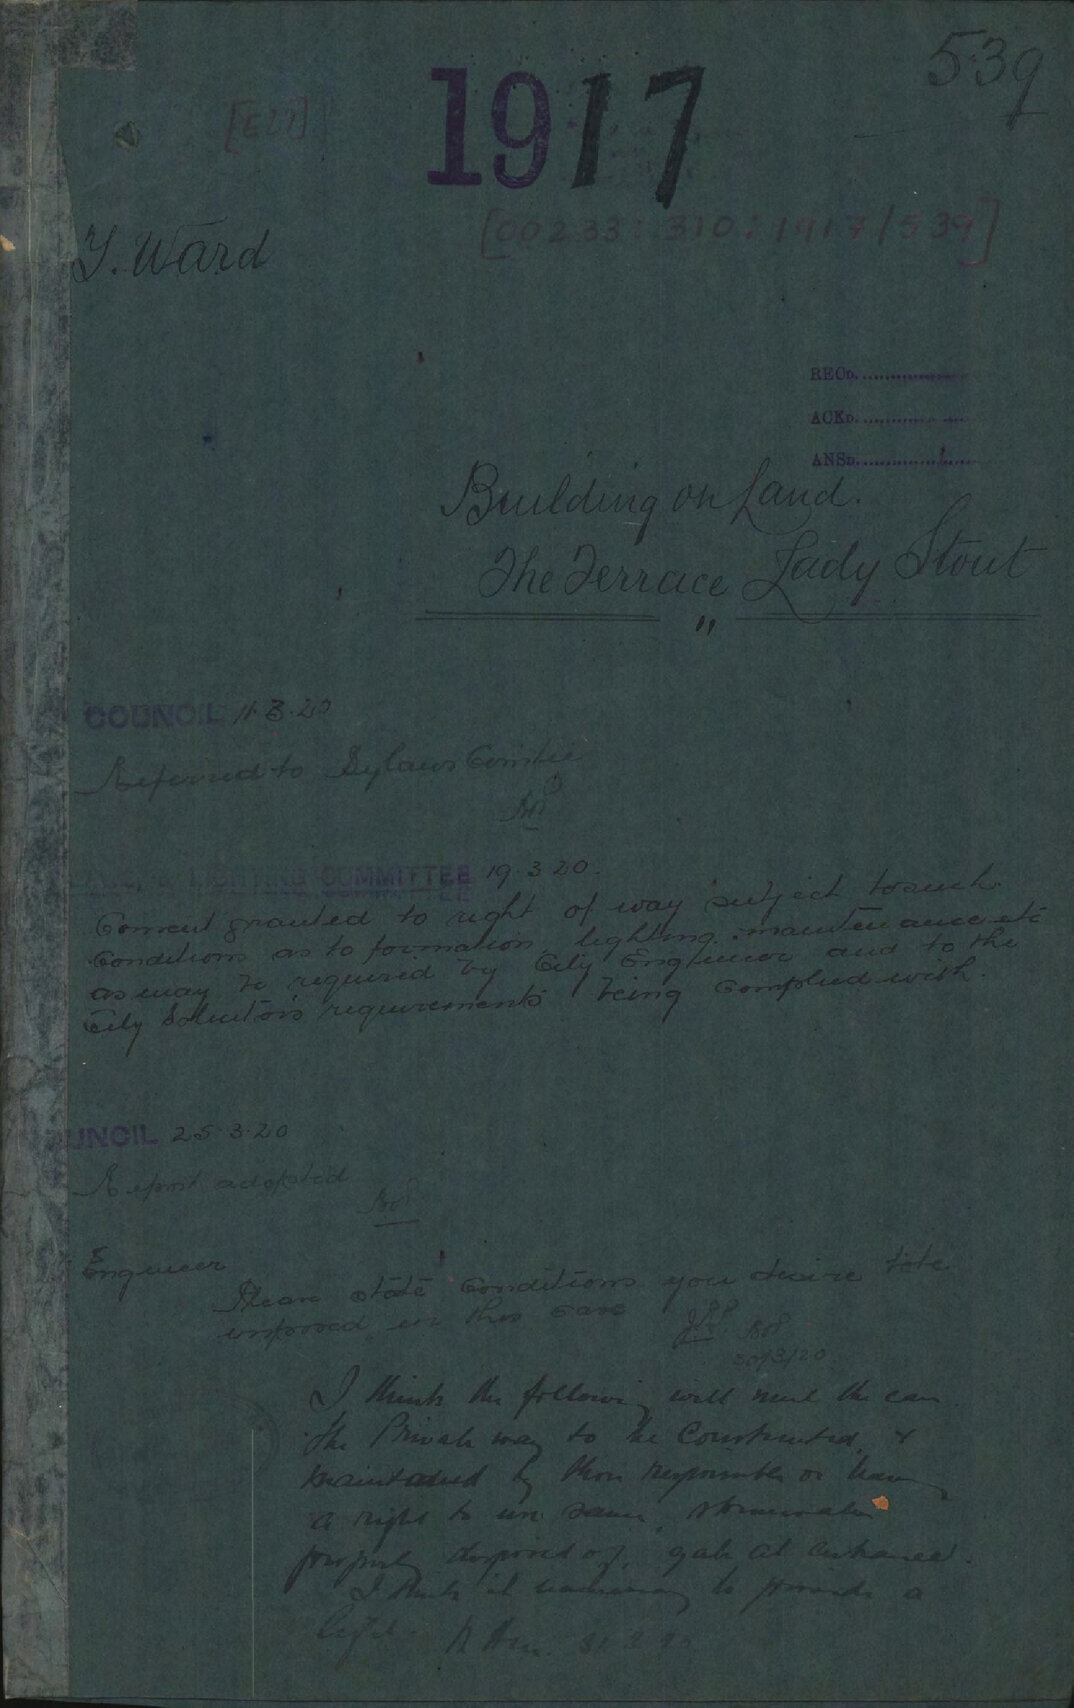 539
1917
[E27]
[00233:310:1917/539]
Y. Ward
RECD.
ACKD.
ANSD.
Building on Land.
The Terrace Lady Stout
"
COUNCIL 11.3.20
Referred to Bylaws Comtee
LIGHTING COMMITTEE 19.3.20.
Consent granted to right of way subject to such
conditions as to formation, lighting, maintenance etc
as may be required by City Engineer and to the
City Solicitors requirements being complied with.
UNCIL 25.3.20
Report adopted
Engineer
Please state conditions you desire to be
imposed in this case
30/3/20
I think the following will meet the case
The Private way to be Constructed, &
maintained by those responsible or have
a right to use same, stormwater
properly disposed of, gate at entrance.
I think it necessary to provide a
light. 31.3.20